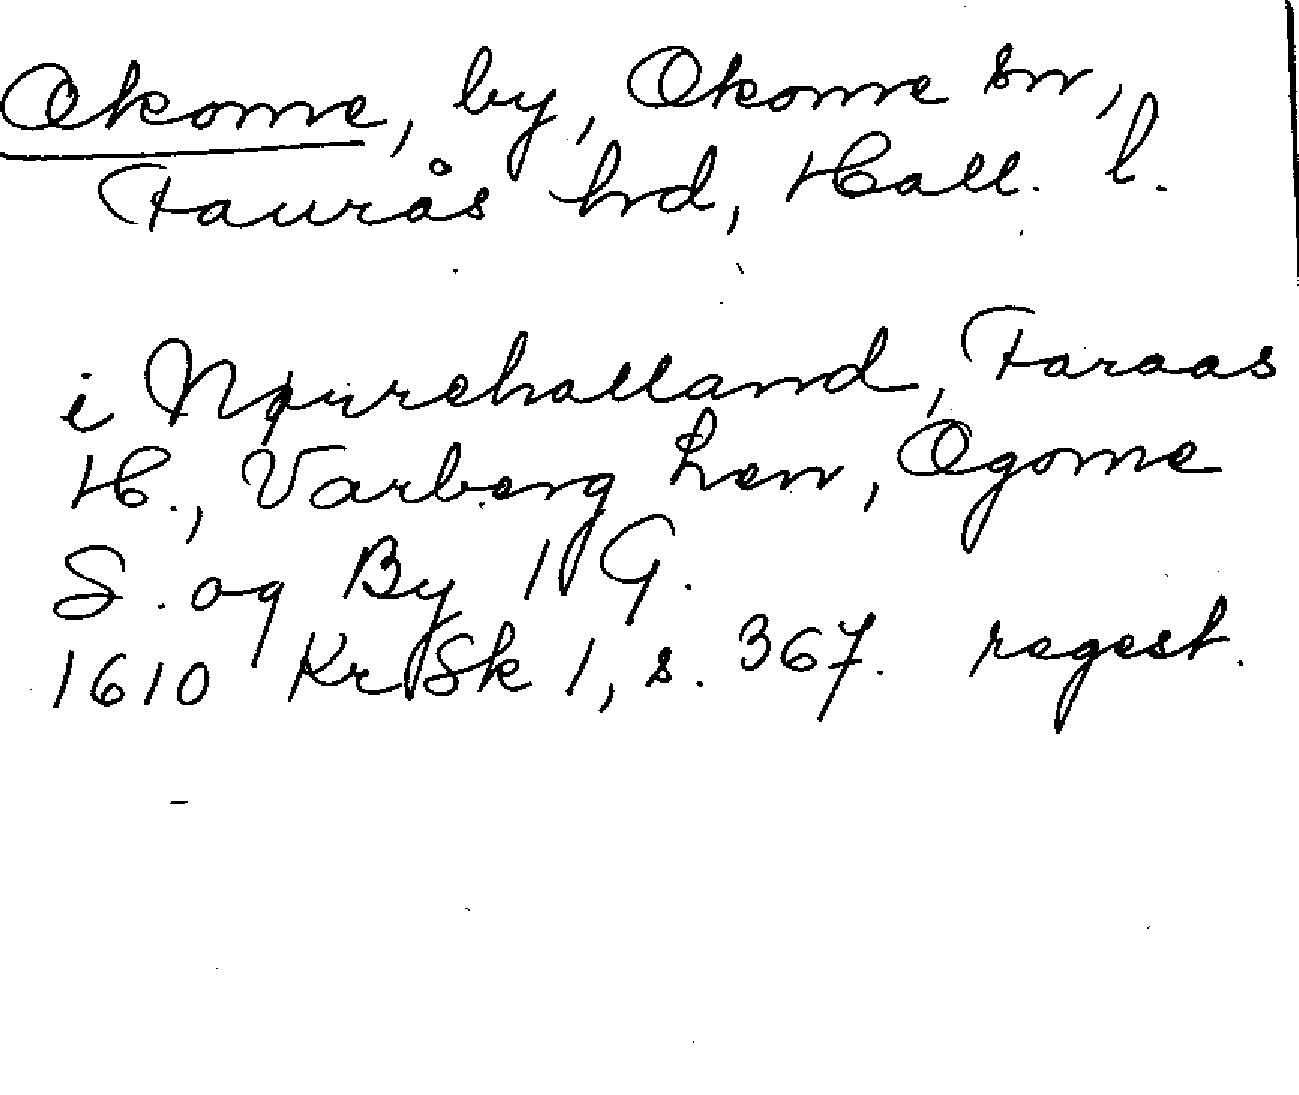 Okome, by, Okome sn,
Faurås hrd, Hall. l.
i Nørrehalland, Faraas
H., Varberg Len, Ogome
S. og By 1 G.
1610 KrSk 1, s. 367. regest.